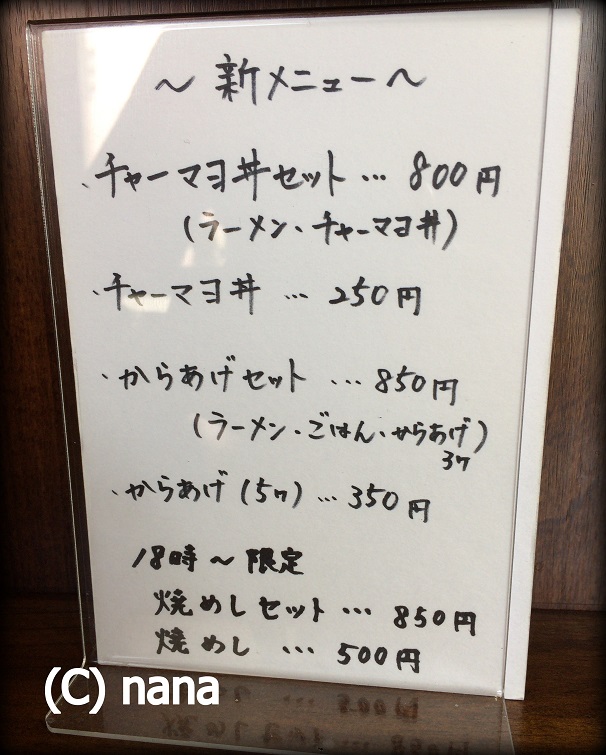 ～新メニュー～
・チャーマヨ丼セット…800円
(ラーメン・チャーマヨ丼)
・チャーマヨ丼…250円
・からあげセット…850円
(ラーメン・ごはん・からあげ)
3ケ
・からあげ(5ケ)…350円
18時～限定
焼めしセット…850円
焼めし…500円
(C) nana